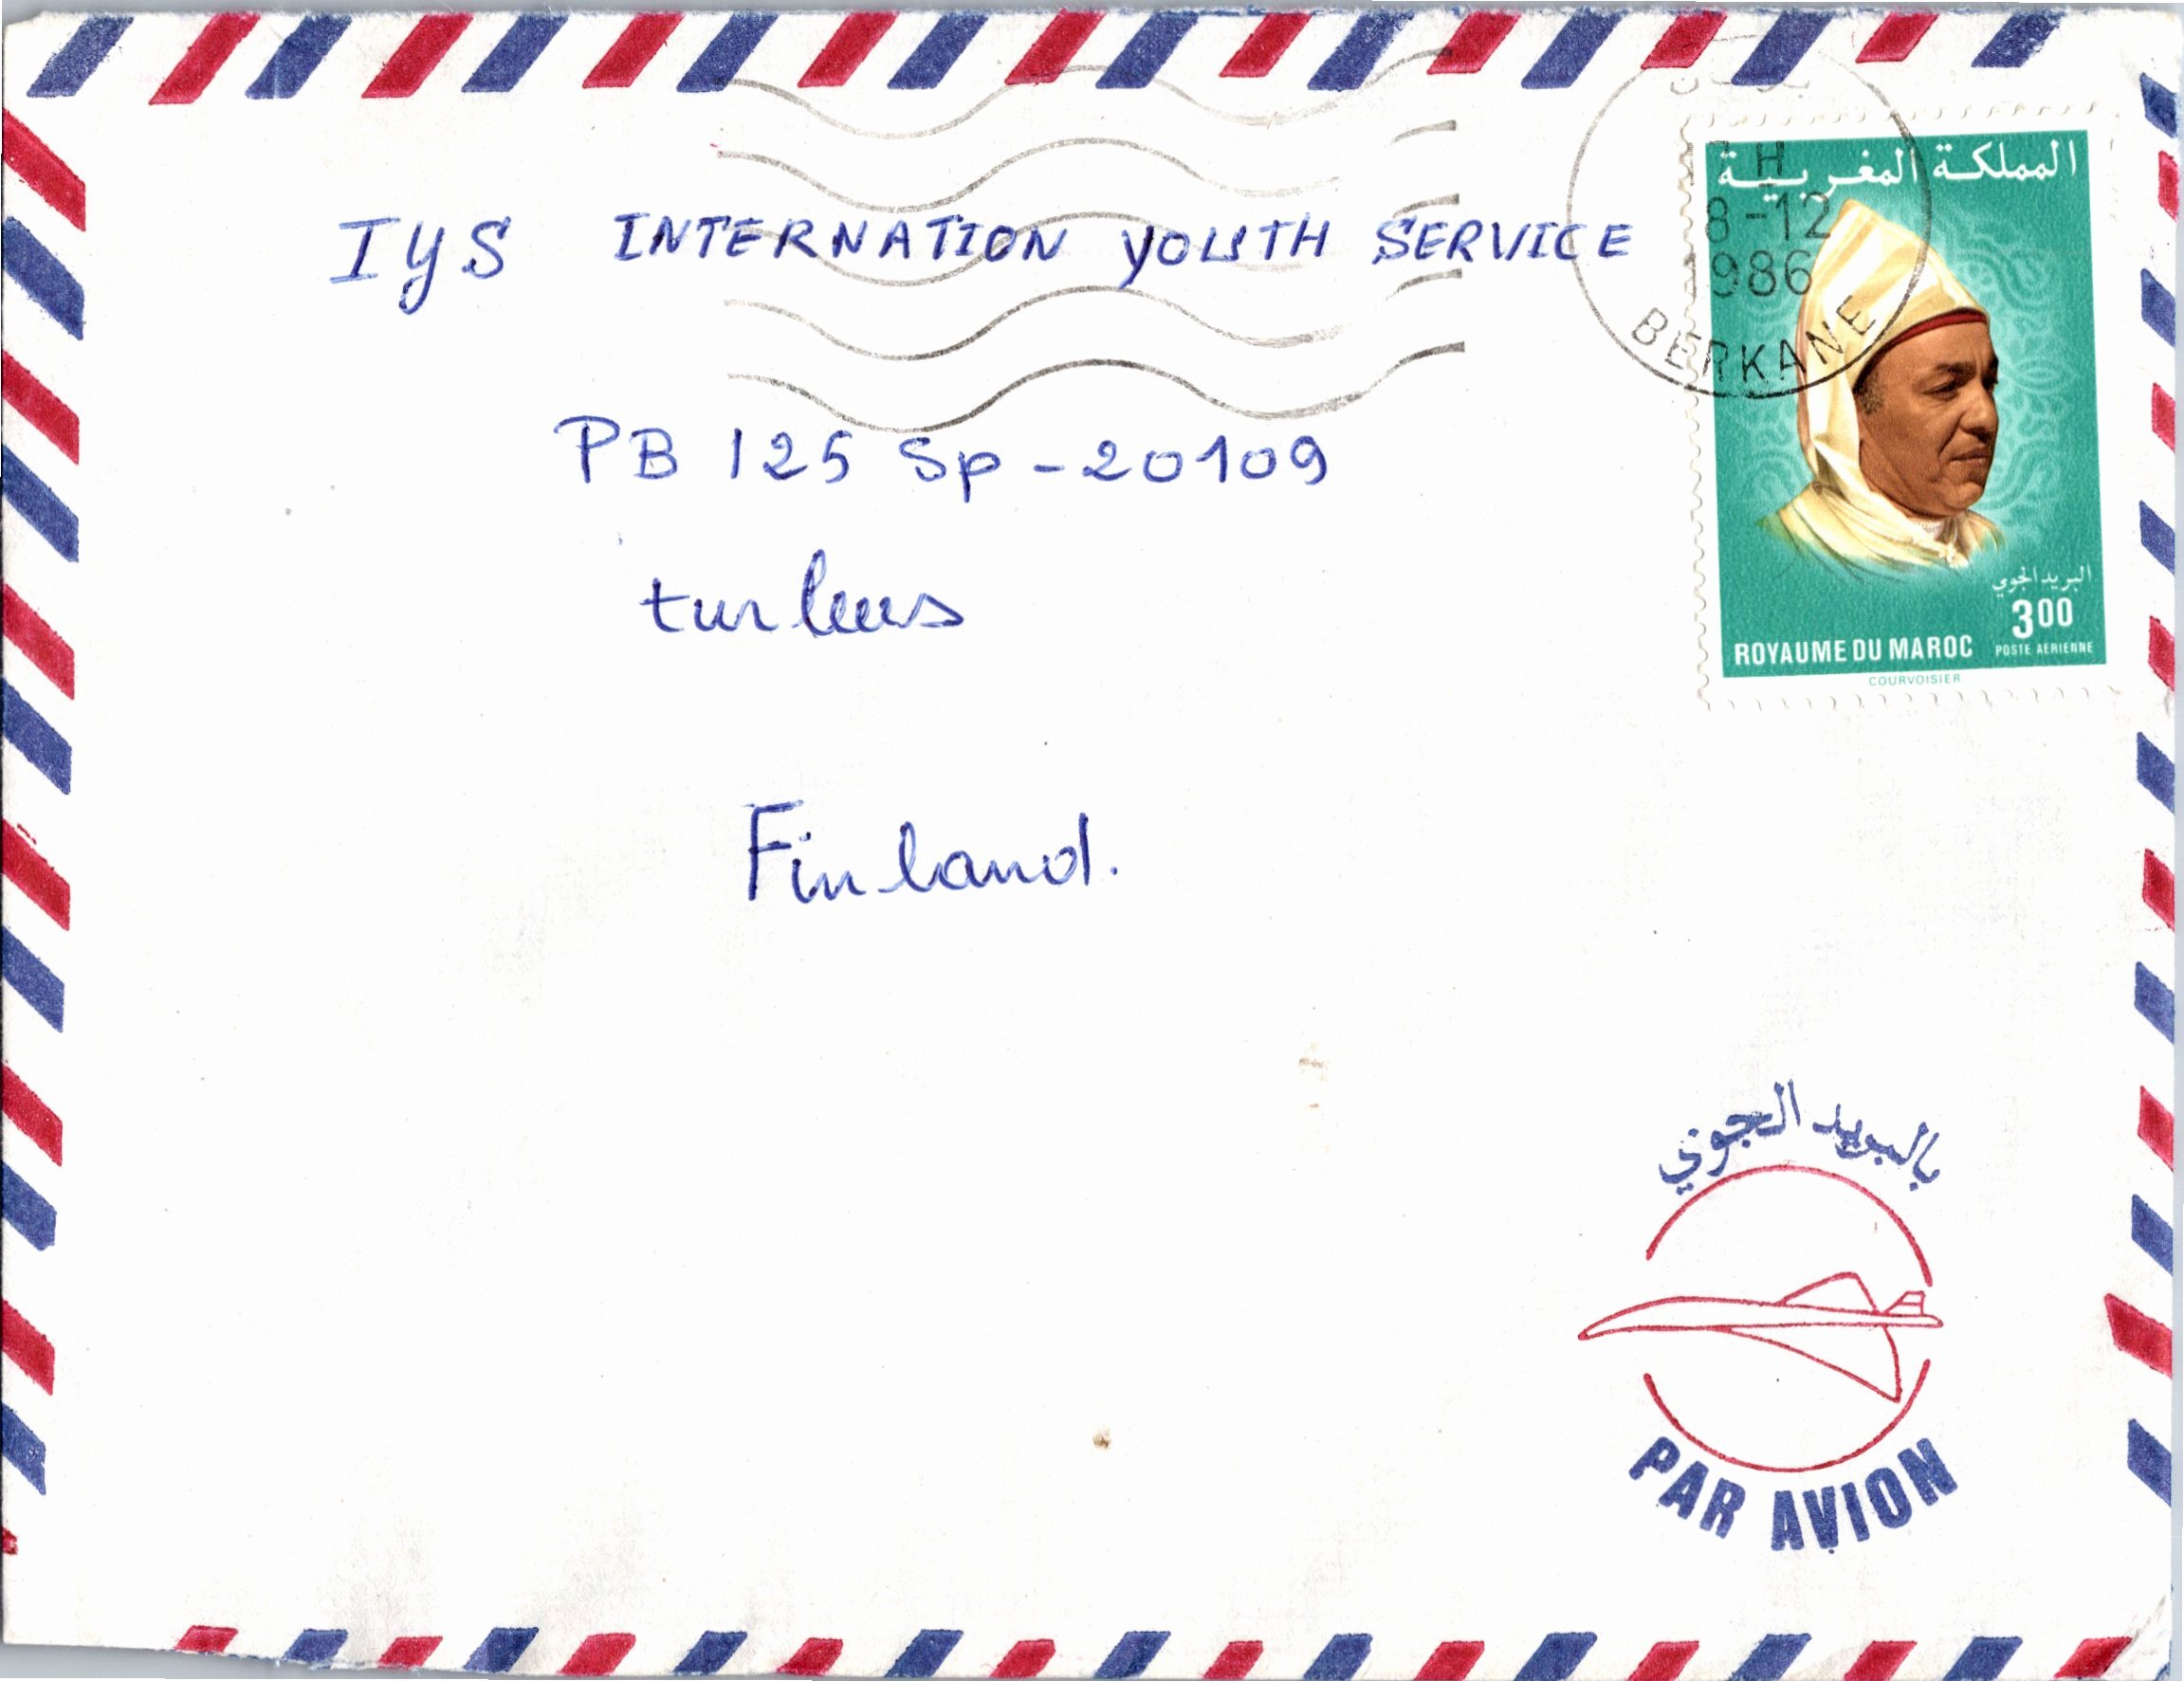 IYS INTERNATION YOUTH SERVICE
PB 125 Sp - 20109
turleus
Finland.
H
8-12
1986
BERKANE
المملكة المغربية
البريد الجوي
3.00
ROYAUME DU MAROC POSTE AERIENNE
COURVOISIER
بالبريد الجوي
PAR AVION